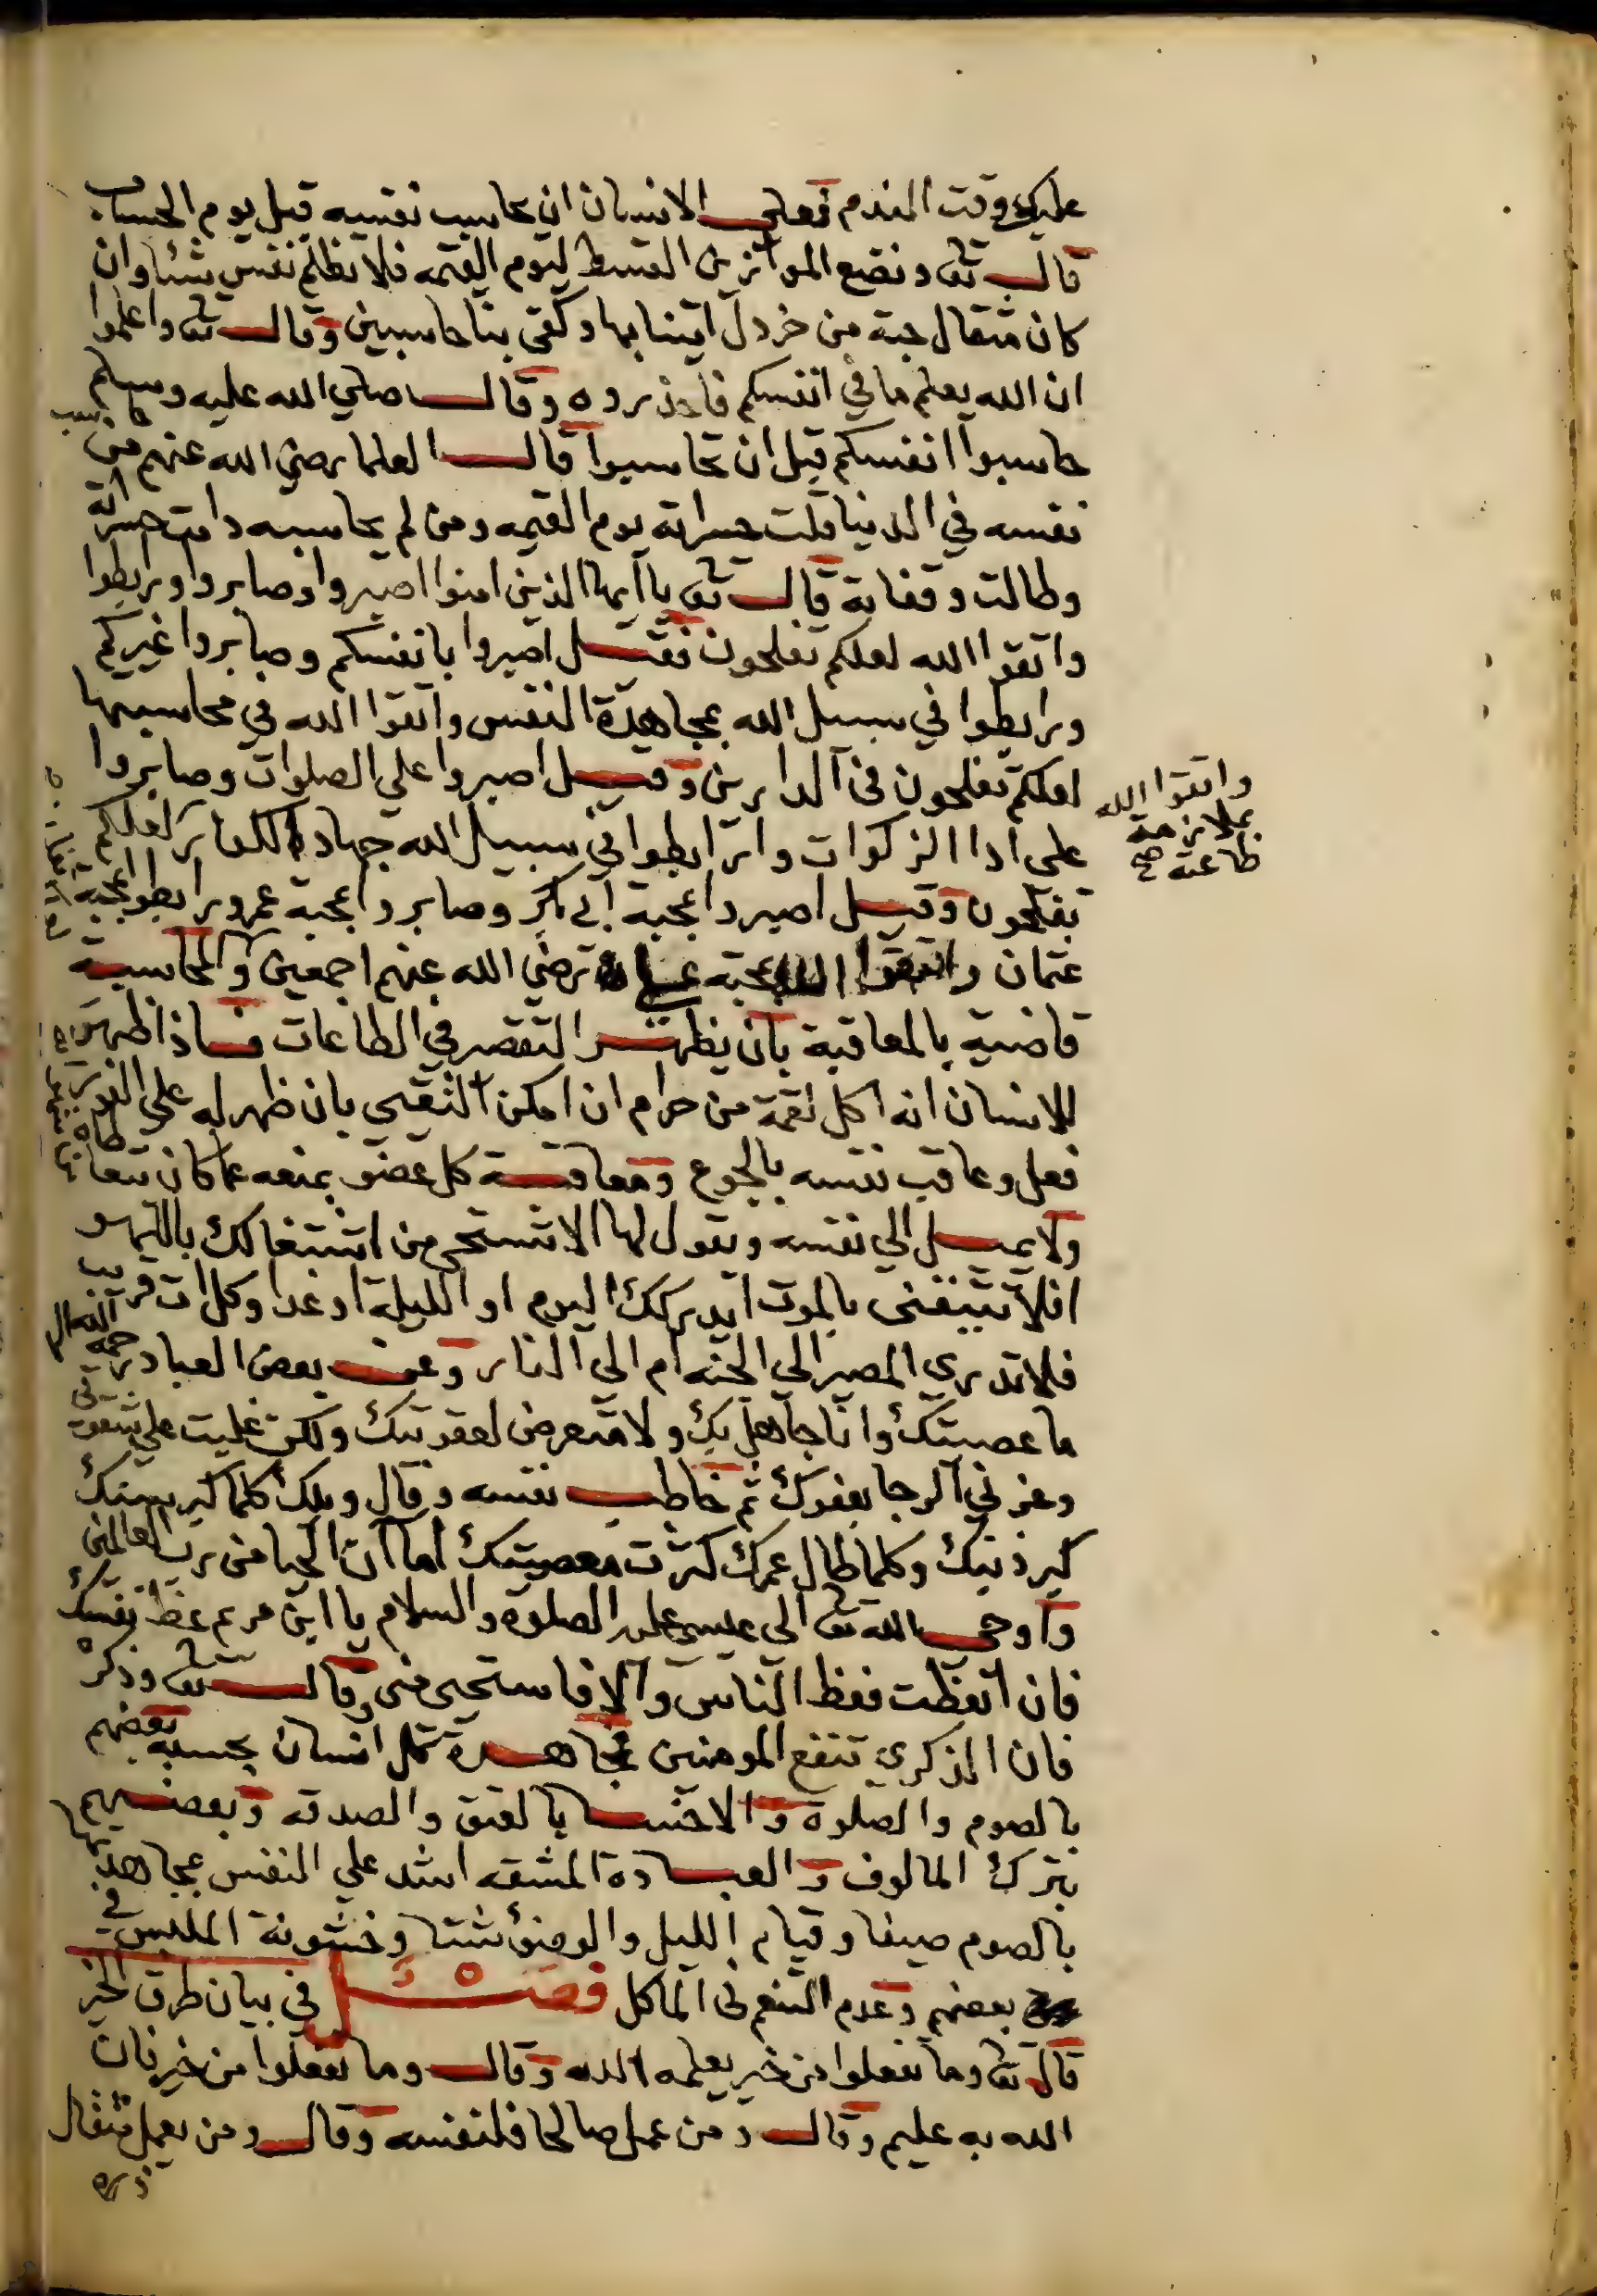 عليك وقت المقدم فعلى الانسان ان يحاسب نفسه قبل يوم الحساب
قال تعا ونضع الموازين القسط ليوم القيمه فلا تظلم نفس شئا وان
كان مثقال حبة من خردل اتينا بها وكفى بنا حاسبين وقال تعا واعلموا
ان الله يعلم ما في انفسكم فاحذروه وقال صلي الله عليه وسلم
حاسبوا انفسكم قبل ان تحاسبوا قال العلما رضي الله عنهم من حاسب
نفسه في الدنيا قلت حسراته يوم القيمه ومن لم يحاسبه دامت حسراته
وطالت وقفاته قال تعا يا ايها الذين امنوا اصبروا وصابروا ورابطوا
واتقوا الله لعلكم تفلحون فقيل اصبروا بانفسكم وصابروا غيركم
ورابطوا في سبيل الله بمجاهدة النفس واتقوا الله في محاسبتها
لعلكم تفلحون في الدارين وقيل اصبروا علي الصلوات وصابروا
على ادا الزكوات ورابطوا في سبيل الله جهاد الكفار لعلكم
واتقوا الله
بملازمة
طاعته صح
تفلحون وقيل اصبروا بمحبة ابي بكر وصابروا بمحبة عمر ورابطوا بمحبة
عثمان واتقوا الله بمحبة علي رضي الله عنهم اجمعين والمحاسبة
قاضية بالمعاقبة بان يظهر التقصر في الطاعات فاذا ظهر
للانسان انه اكل لقمة من حرام ان امكن التقيي بان ظهر له على الفور
فعل وعاقب نفسه بالجوع ومعاقبة كل عضو بمنعه عما كان
ولا يميل الي نفسه ويقول لها الا تستحي من اشتغالك باللهو
افلا تتيقني بالموت ايدركك اليوم او الليلة او غدا وكل ات قريب
فلا تدري المصير الي الجنه ام الي النار وعن بعض العباد رحمه الله
ما عصيتك وانا جاهل بك ولا متعرض لعقوبتك ولكن غلبت علي شقوتي
وغرني الرجا بعفوك ثم خاطب نفسه وقال ويلك كلما كبر سنك
كبر ذنبك وكلما طال عمرك كثرت معصيتك اما آن الحيا من رب العالمين
واوحي الله تعا الي عيسي عليه الصلوة والسلام يا ابن مريم عظ نفسك
فان اتعظت فعظ الناس والا فاستحي مني وقال تعا وذكر
فان الذكري تنفع المومنين مجاهدة كل انسان بحسبه بعضهم
بالصوم والصلوة والاخر بالعتق والصدقه وبعضهم
بترك المالوف والعبادة المشقه اشد علي النفس بمجاهدتها
بالصوم صيفا وقيام الليل والوضؤ شتا وخشونة الملبس في
بعضهم وعدم التنعم في الماكل فصل في بيان طرق الخير
قال تعا وما تفعلوا من خير يعلمه الله وقال وما تفعلوا من خير فان
الله به عليم وقال ومن عمل صالحا فلنفسه وقال ومن يعمل مثقال
ذره